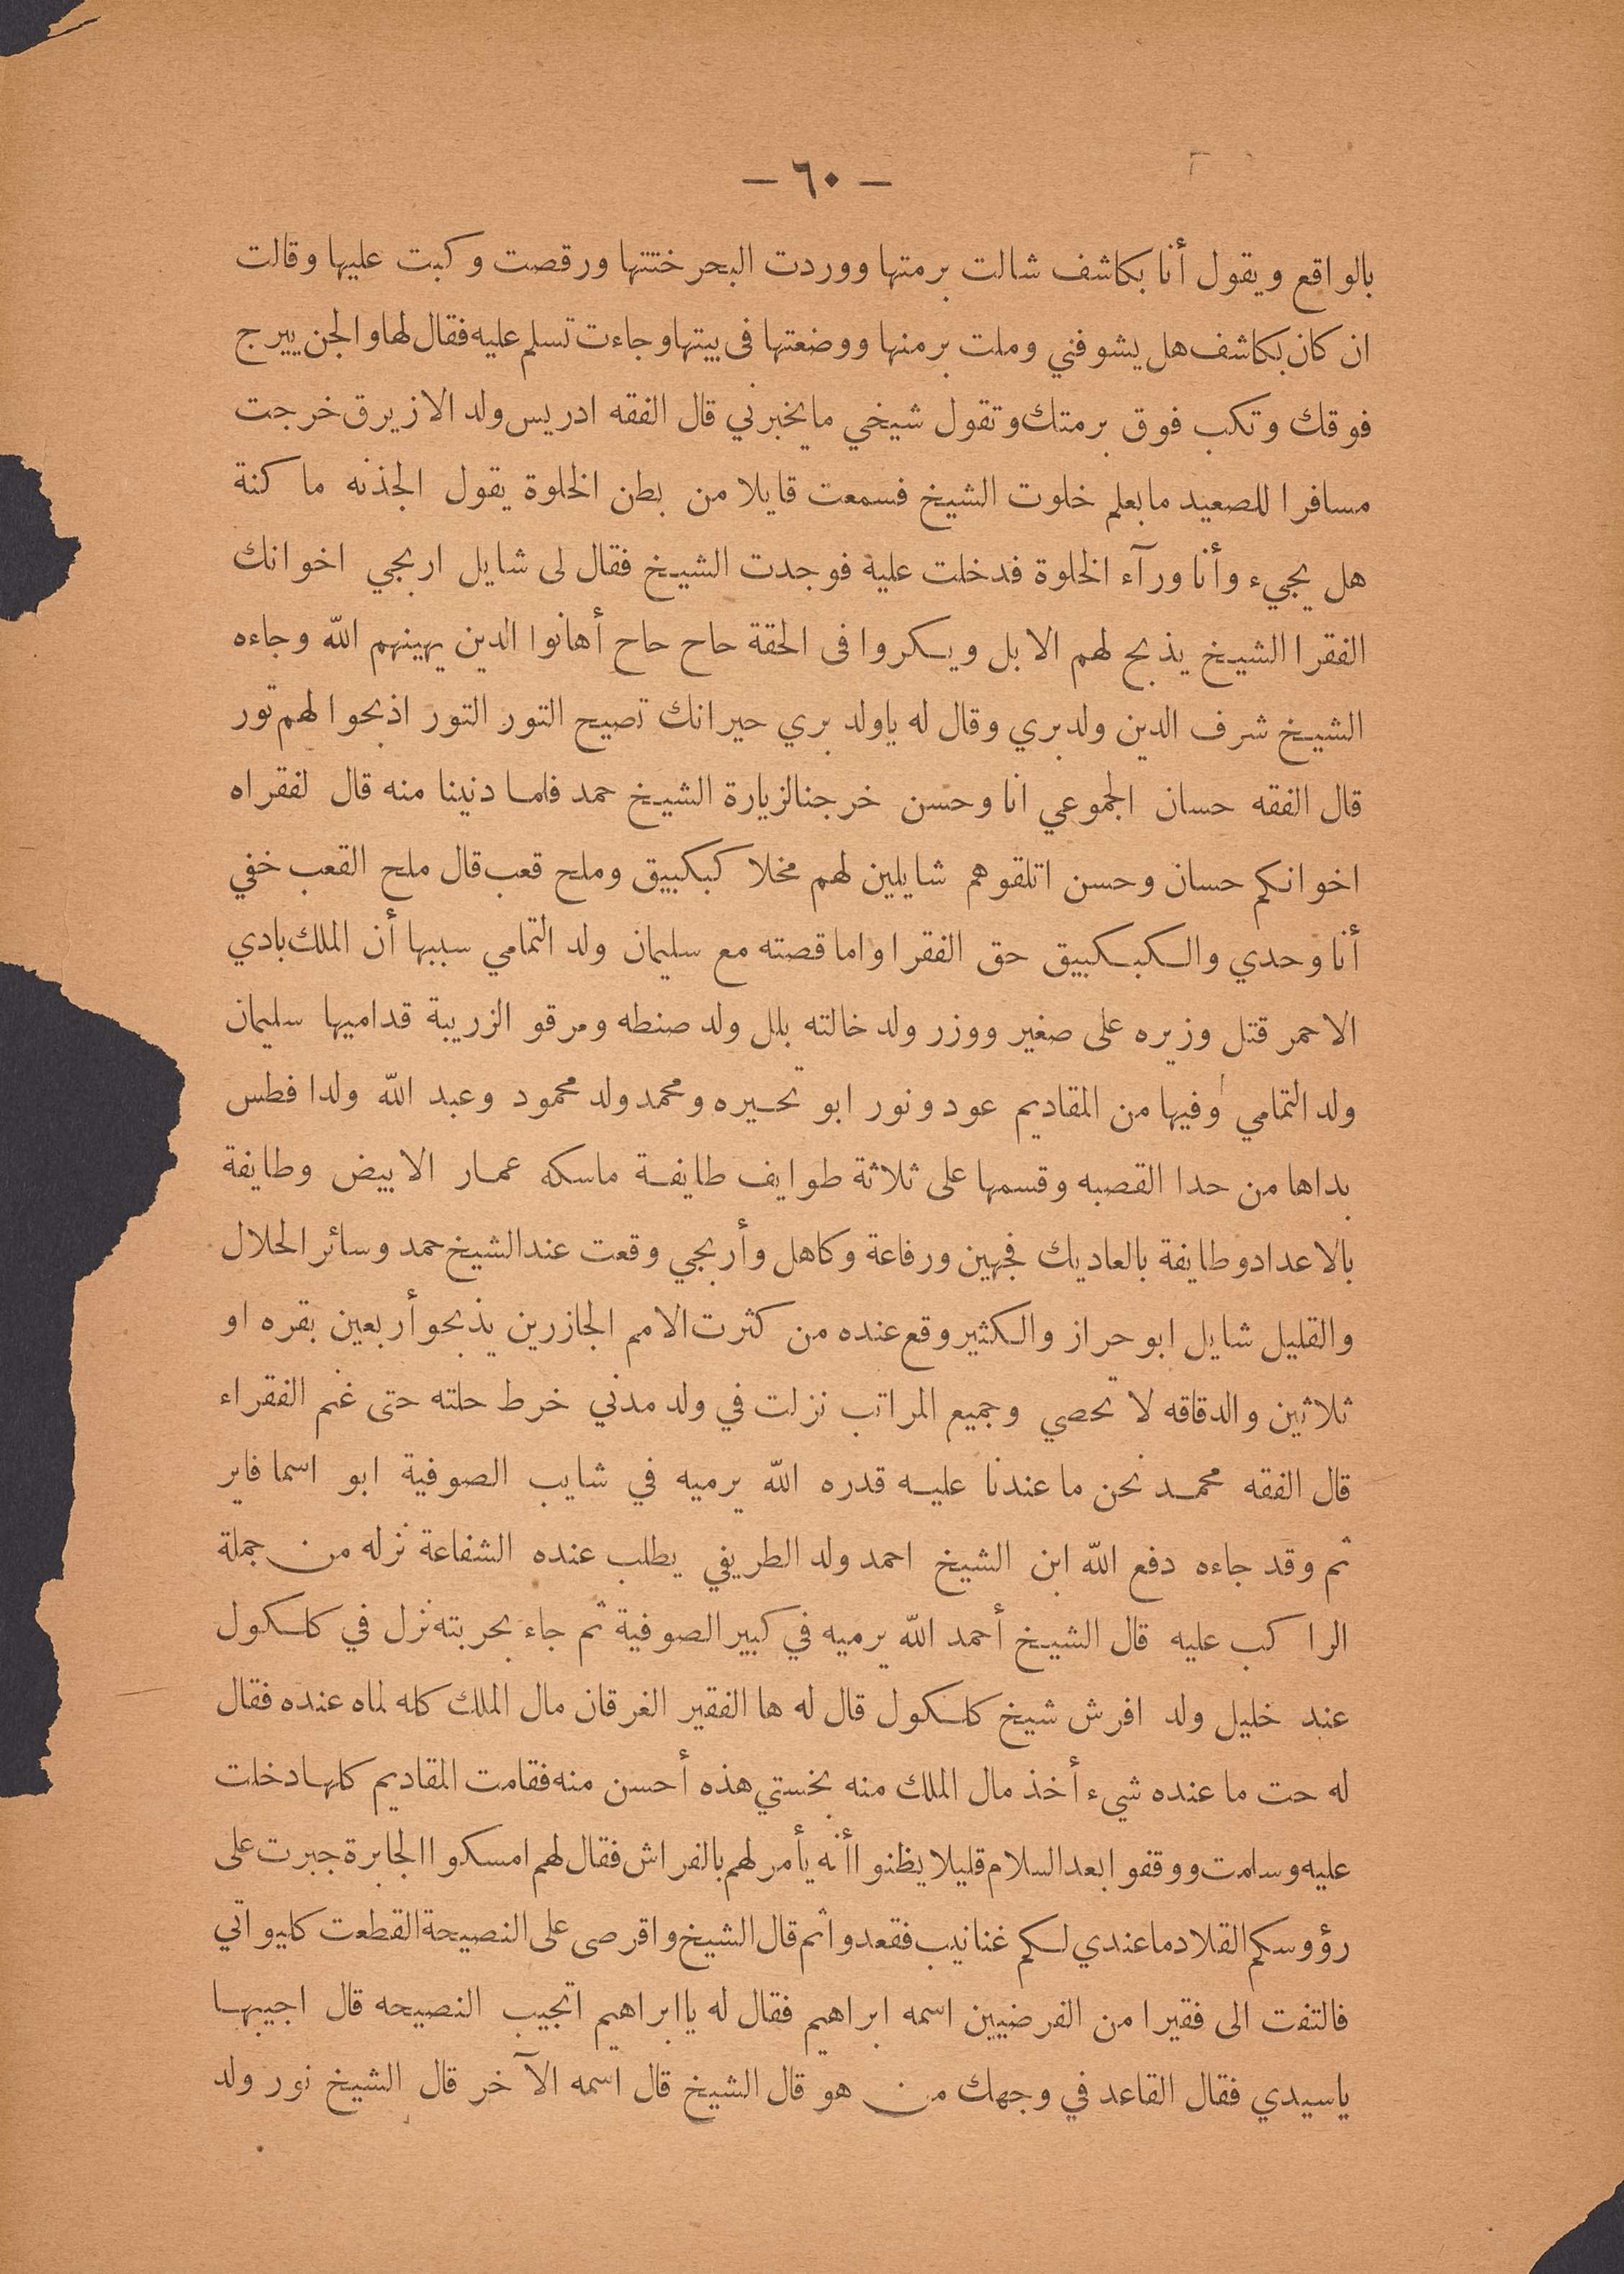 — ٦٠ —
بالواقع ويقول أنا بكاشف شالت برمتها ووردت البحر ختتها ورقصت وكبت عليها وقالت
ان كان بكاشف هل يشوفني وملت برمنها ووضعتها فى بيتها وجاءت تسلم عليه فقال لها والجن ييرج
فوقك وتكب فوق برمتك وتقول شيخي ما يخبرني قال الفقه ادريس ولد الازيرق خرجت
مسافرا للصعيد مابعلم خلوت الشيخ فسمعت قايلا من بطن الخلوة يقول الجذبه ما كنة
هل يجيء وأنا ورآء الخلوة فدخلت عليه فوجدت الشيخ فقال لى شايل اربجي اخوانك
الفقرا الشيخ يذبح لهم الابل ويسكروا فى الحقة حاح حاح أهانوا الدين يهينهم الله وجاءه
الشيخ شرف الدين ولد بري وقال له ياولد بري حيرانك تصيح التور التور اذبحوا لهم تور
قال الفقه حسان الجموعي انا وحسن خرجنا لزيارة الشيخ حمد فلما دنينا منه قال لفقراه
اخوانكم حسان وحسن اتلقوهم شايلين لهم مخلا كبكبيق وملح قعب قال ملح القعب خفي
أنا وحدي والكبكبيق حق الفقرا واما قصته مع سليمان ولد التمامي سببها أن الملك بادي
الاحمر قتل وزيره على صغير ووزر ولد خالته بلل ولد صنطه ومرقو الزريبة قداميها سليمان
ولد التمامي وفيها من المقاديم عود ونور ابو تحسيره ومحمد ولد محمود وعبد الله ولدا فطس
بداها من حدا القصبه وقسمها على ثلاثة طوايف طايفة ماسكه عمار الابيض وطايفة
بالاعداد وطايفة بالعاديك فجهين ورفاعة وكاهل وأربجي وقعت عند الشيخ حمد وسائر الحلال
والقليل شايل ابو حراز والكثير وقع عنده من كثرت الامم الجازرين يذبحو أربعين بقره او
ثلاثين والدقاقه لا تحصي وجميع المراتب نزلت في ولد مدني خرط حلته حتى غنم الفقراء
قال الفقه محمد نحن ما عندنا عليه قدره الله يرميه في شايب الصوفية ابو اسما فاير
ثم وقد جاءه دفع الله ابن الشيخ احمد ولد الطريفي يطلب عنده الشفاعة نزله من جملة
الرا كب عليه قال الشيخ أحمد الله يرميه في كبير الصوفية ثم جاء بحربته نزل في كاسكول
عند خليل ولد افرش شيخ كاسكول قال له ها الفقير الغرقان مال الملك كله لماه عنده فقال
له حت ما عنده شيء أخذ مال الملك منه بخستي هذه أحسن منه فقامت المقاديم كلها دخلت
عليه وسلمت ووقفوا بعد السلام قليلا يظنوا أنه يأمر لهم بالفراش فقال لهم امسكوا الجابرة جبرت على
رؤوسكم القلاد ما عندي لكم غنانيب فقعدوا ثم قال الشيخ واقرصى على النصيحة القطعت كليواتي
فالتفت الى فقيرا من الفرضيين اسمه ابراهيم فقال له يا ابراهيم اتجيب النصيحه قال اجيبها
ياسيدي فقال القاعد في وجهك من هو قال الشيخ قال اسمه الآخر قال الشيخ نور ولد